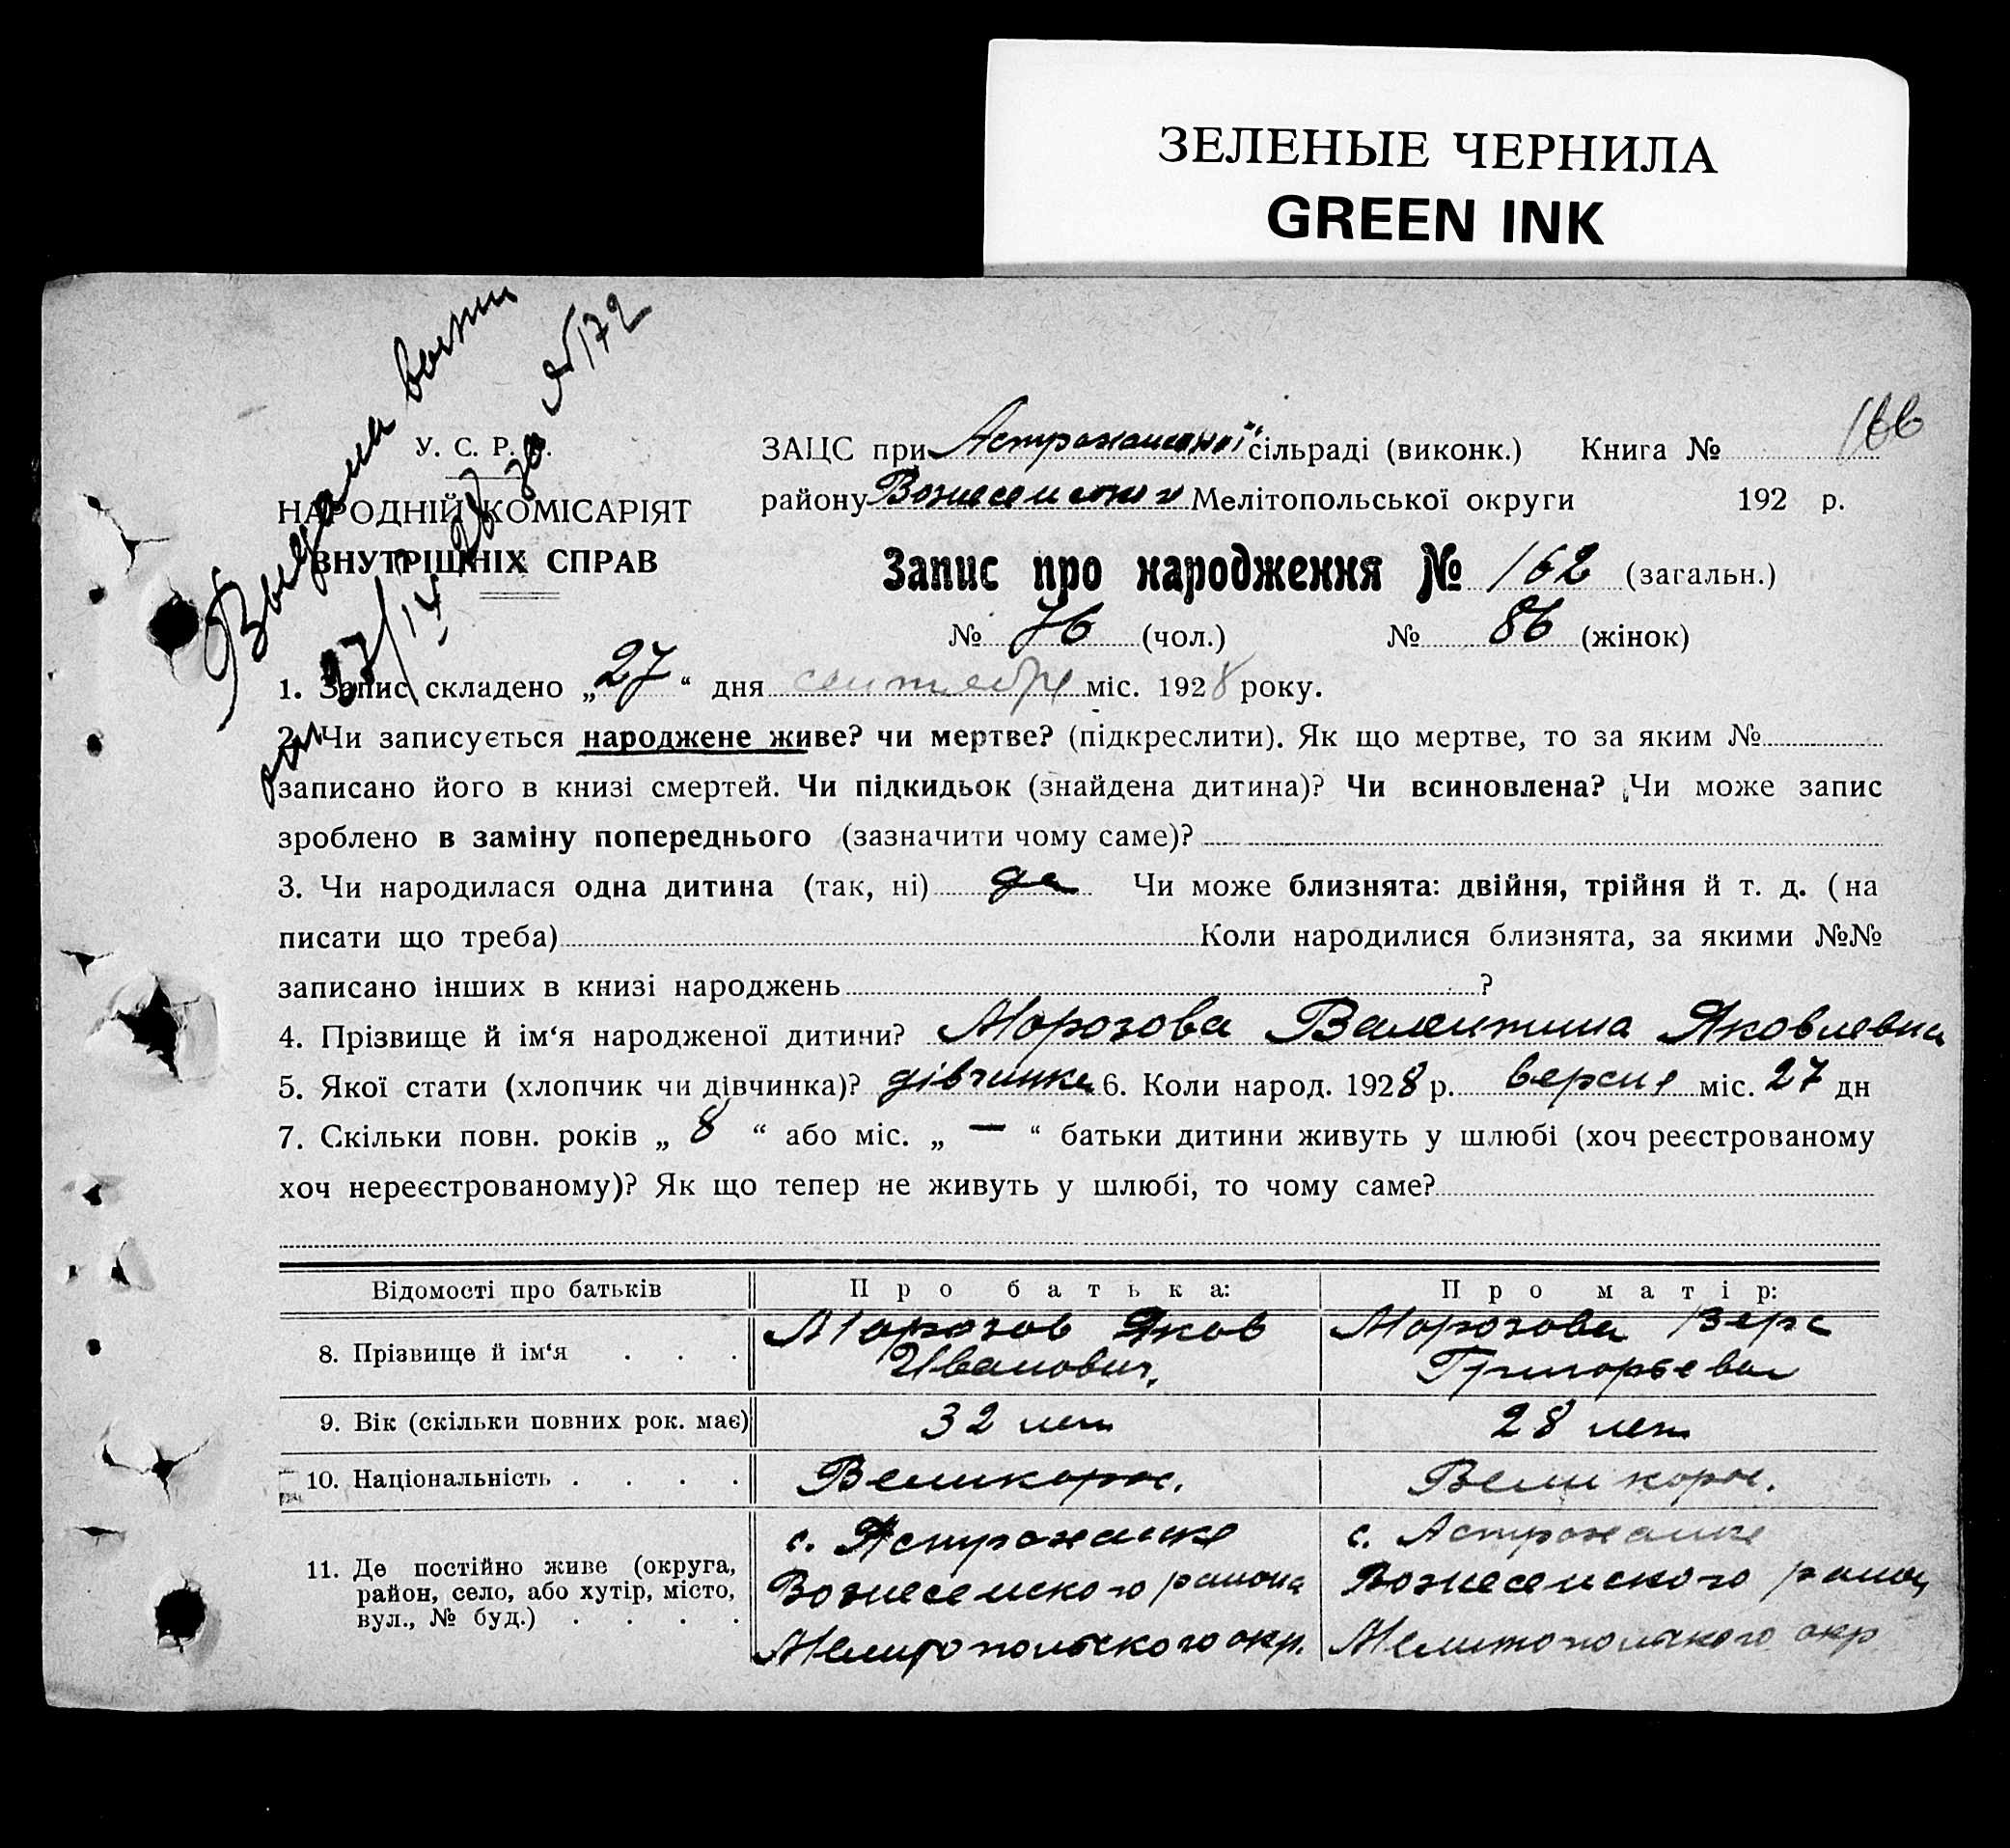 ЗЕЛЕНЫЕ ЧЕРНИЛА
GREEN INK
№ 172
166
У. С. Р. Р.
НАРОДНІЙ КОМІСАРІЯТ
ВНУТРІШНІХ СПРАВ
ЗАЦС при Астраханської сільраді (виконк.) Книга №
району Вознесенского Мелітопольської округи 192 р.
Запис про народження № 162 (загальн.)
№ 76 (чол.) № 86 (жінок)
1. Запис складено „27“ дня сентября міс. 1928 року.
2. Чи записується народжене живе? чи мертве? (підкреслити). Як що мертве, то за яким №
записано його в книзі смертей. Чи підкидьок (знайдена дитина)? Чи всиновлена? Чи може запис
зроблено в заміну попереднього (зазначити чому саме)?
3. Чи народилася одна дитина (так, ні) да Чи може близнята: двійня, трійня й т. д. (на
писати що треба) Коли народилися близнята, за якими №№
записано інших в книзі народжень ?
4. Прізвище й ім‘я народженої дитини? Морозова Валентина Яковлевна
5. Якої стати (хлопчик чи дівчинка)? дівчинка 6. Коли народ. 1928 р. версня міс. 27 дн
7. Скільки повн. років „ 8 “ або міс. „ — “ батьки дитини живуть у шлюбі (хоч реєстрованому
хоч нереєстрованому)? Як що тепер не живуть у шлюбі, то чому саме?
Відомості про батьків Про батька: Про матір:
8. Прізвище й ім‘я . . . Морозов Яков Иванович, Морозова Вера Григорьевна
9. Вік (скільки повних рок. має) 32 лет 28 лет
10. Національність . . . . Великорос. Великорос.
11. Де постійно живе (округа, район, село, або хутір, місто, вул., № буд.) . . . .
с. Астраханке
Вознесенского района
Мелитопольского окр.
с. Астраханке
Вознесенского район
Мелитопольского окр